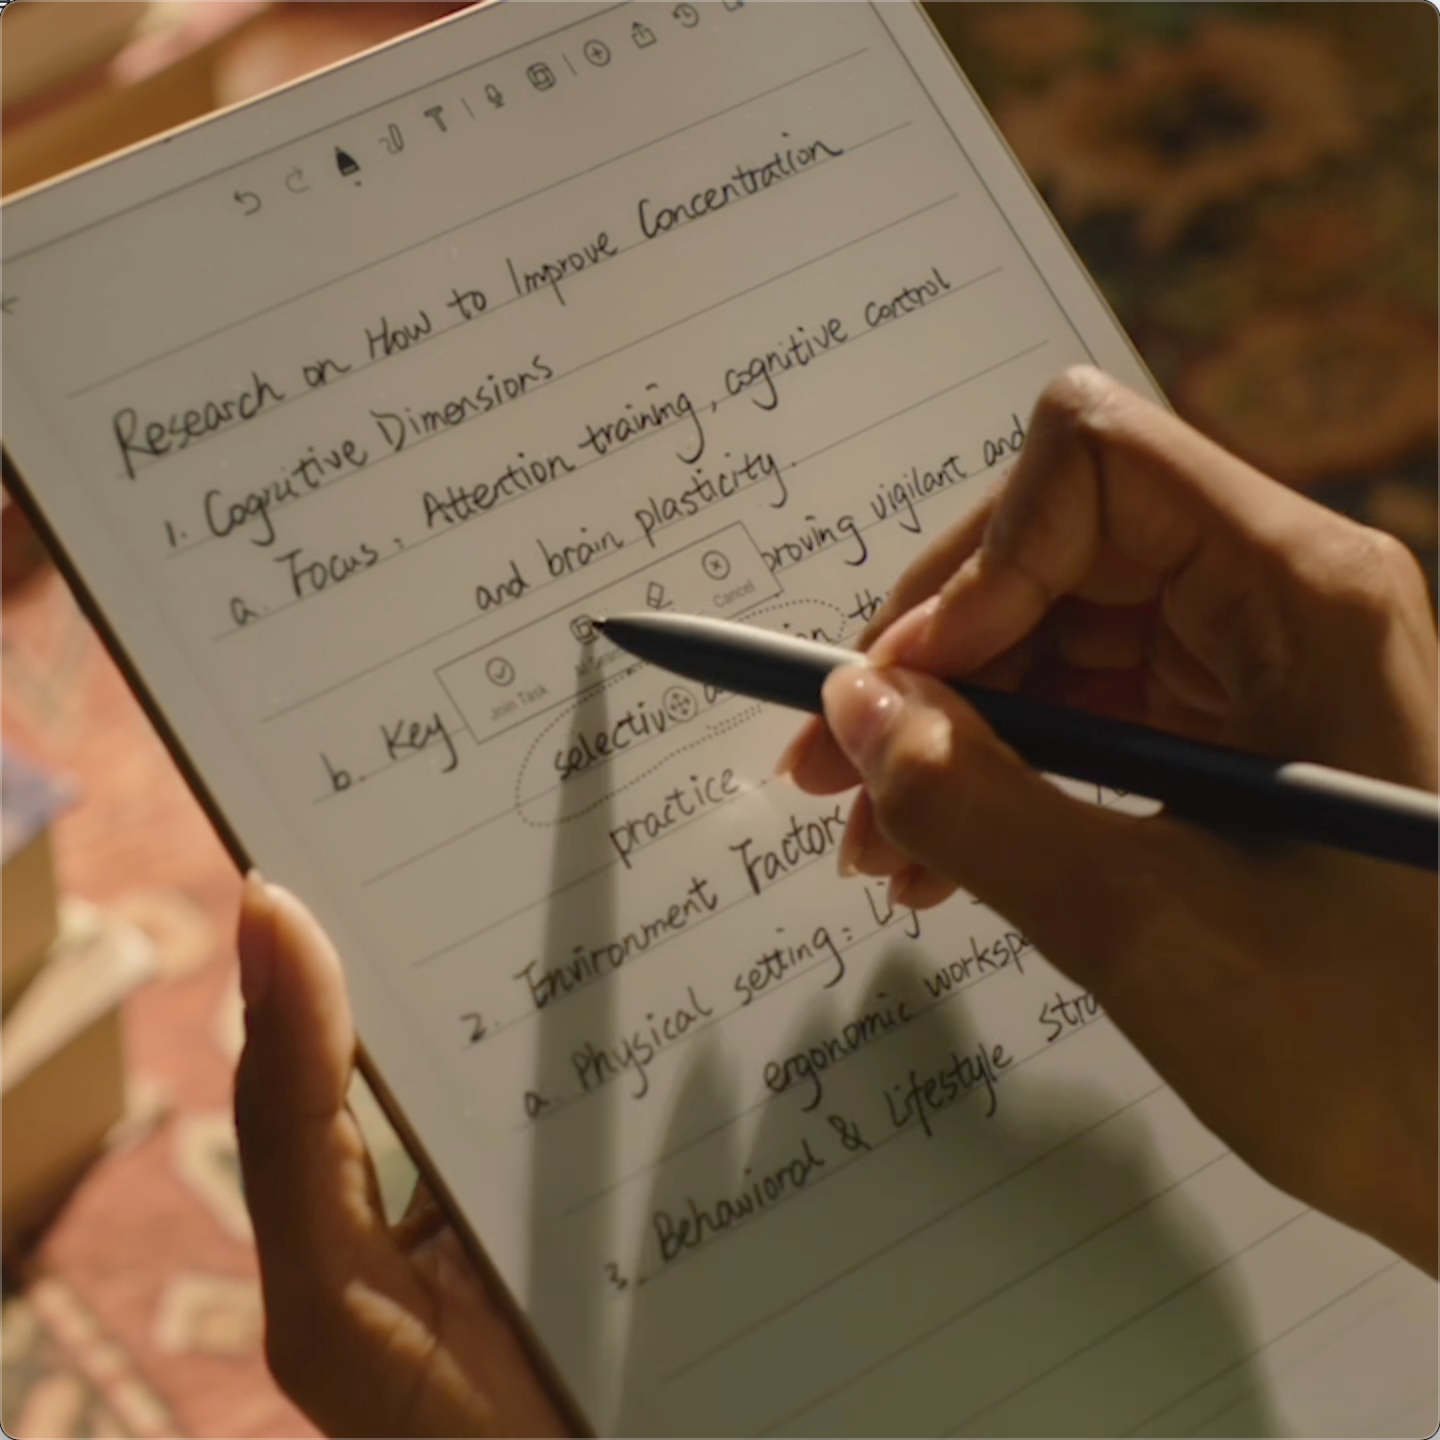 Research on How to Improve Concentration
1. Cognitive Dimensions
a. Focus: Attention training, cognitive control
and brain plasticity.
b. Key proving vigilant and
Join Task Cancel
selective
practice
2. Environment Factors
a. Physical setting:
ergonomic
3. Behavioral & Lifestyle